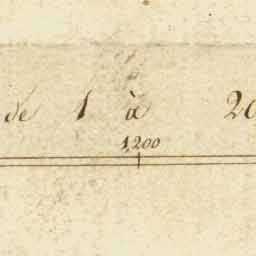 de 1 à 20
1,200